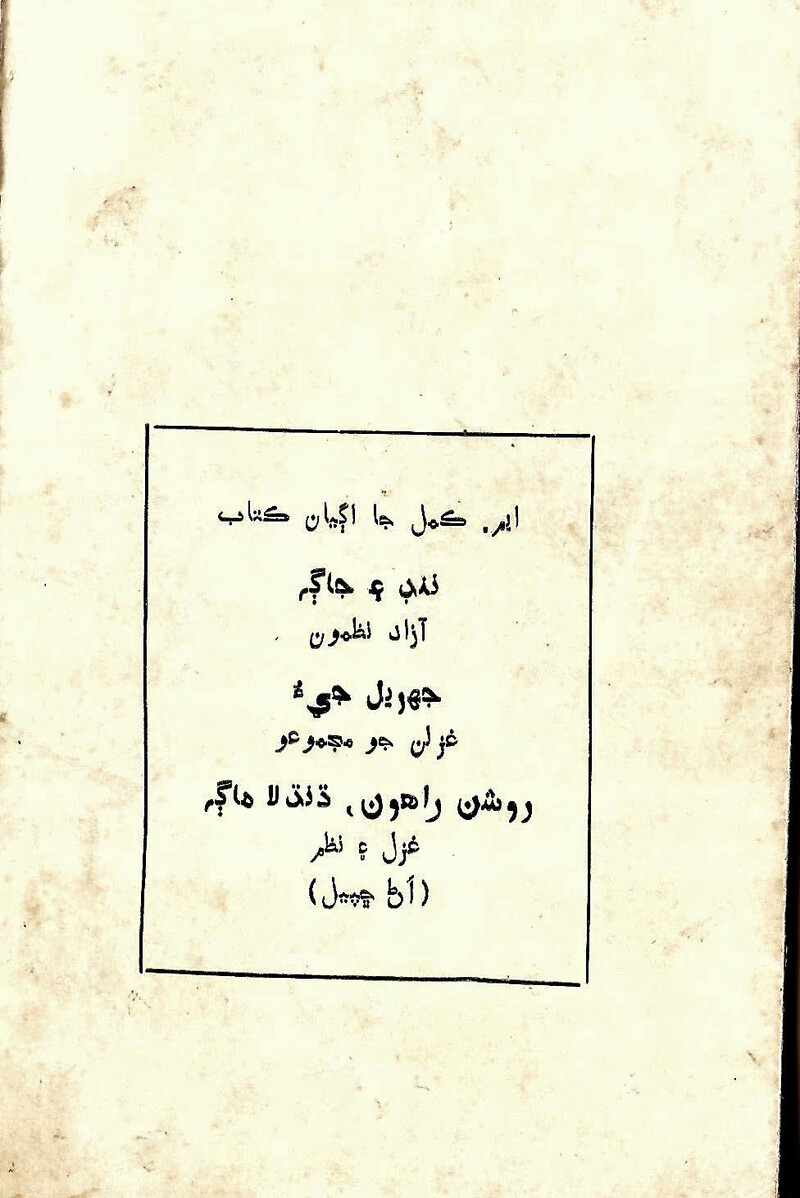 ايم. ڪمل جا اڳيان ڪتاب
ننڊ ۽ جاڳ
آزاد نظمون
جهريل جيءُ
غزلن جو مجموعو
روشن راهون، ڌنڌلا ماڳ
غزل ۽ نظم
(اَڻ ڇپيل)